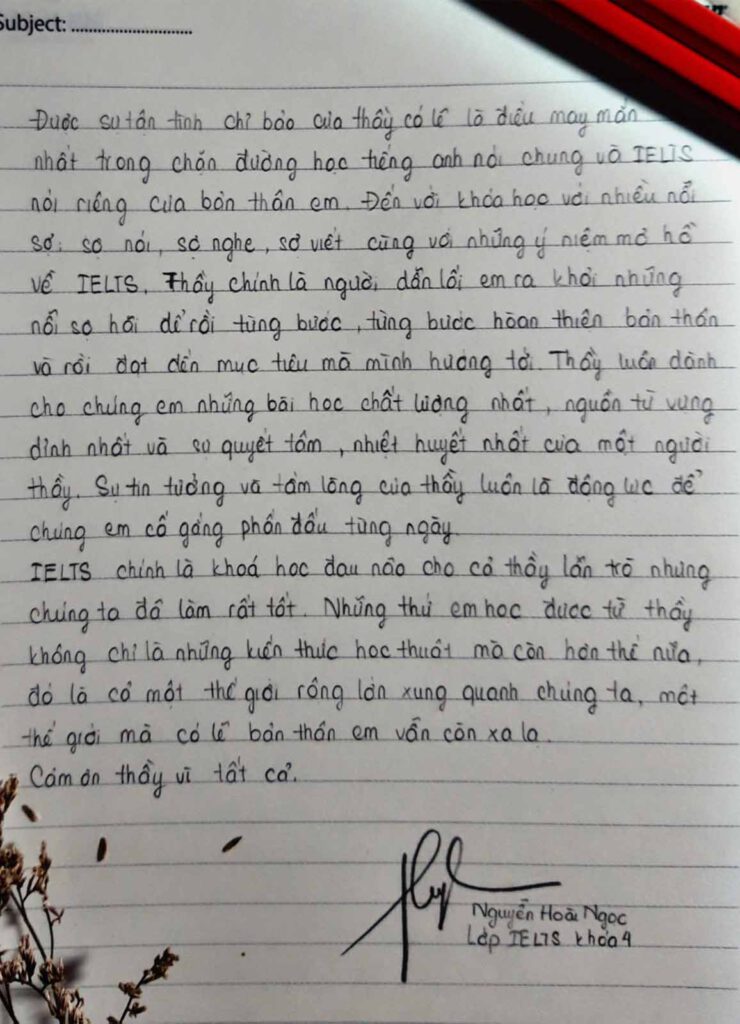 Subject: ................................
Được sự tận tình chỉ bảo của thầy có lẽ là điều may mắn
nhất trong chặn đường học tiếng anh nói chung và IELTS
nói riêng của bản thân em. Đến với khóa học với nhiều nỗi
sợ: sợ nói, sợ nghe, sợ viết cùng với những ý niệm mơ hồ
về IELTS. Thầy chính là người dẫn lối em ra khỏi những
nỗi sợ hãi để rồi từng bước, từng bước hoàn thiện bản thân
và rồi đạt đến mục tiêu mà mình hướng tới. Thầy luôn dành
cho chúng em những bài học chất lượng nhất, nguồn từ vựng
đỉnh nhất và sự quyết tâm, nhiệt huyết nhất của một người
thầy. Sự tin tưởng và tấm lòng của thầy luôn là động lực để
chúng em cố gắng phấn đấu từng ngày.
IELTS chính là khoá học đau não cho cả thầy lẫn trò nhưng
chúng ta đã làm rất tốt. Những thứ em học được từ thầy
không chỉ là những kiến thức học thuật mà còn hơn thế nữa,
đó là cả một thế giới rộng lớn xung quanh chúng ta, một
thế giới mà có lẽ bản thân em vẫn còn xa lạ.
Cảm ơn thầy vì tất cả.
Nguyễn Hoài Ngọc
Lớp IELTS khóa 4